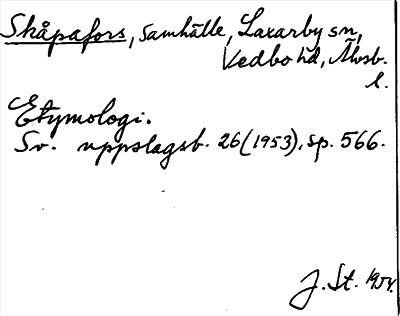 Skåpafors, samhälle, Laxarby sn,
Vedbo hd, Älvsb.
l.
Etymologi.
Sv. uppslagsb. 26(1953), sp. 566.
J. St. 1954.